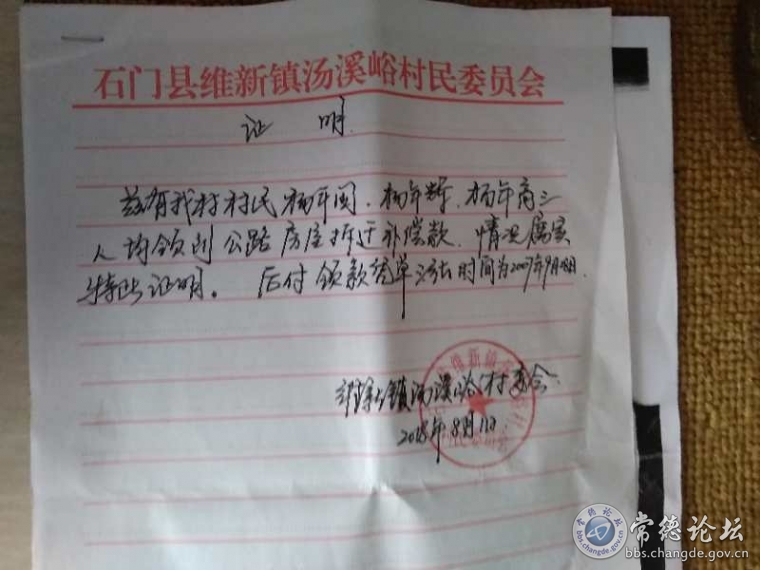 石门县维新镇汤溪峪村民委员会
证 明
兹有我村村民杨年阅、杨年辉、杨年商三
人均领到公路房屋拆迁补偿款、情况属实
特此证明。后付领款统单 时间为2009年9月
维新镇汤溪峪村委会
2018年8月11日
常德论坛
bbs.changde.gov.cn